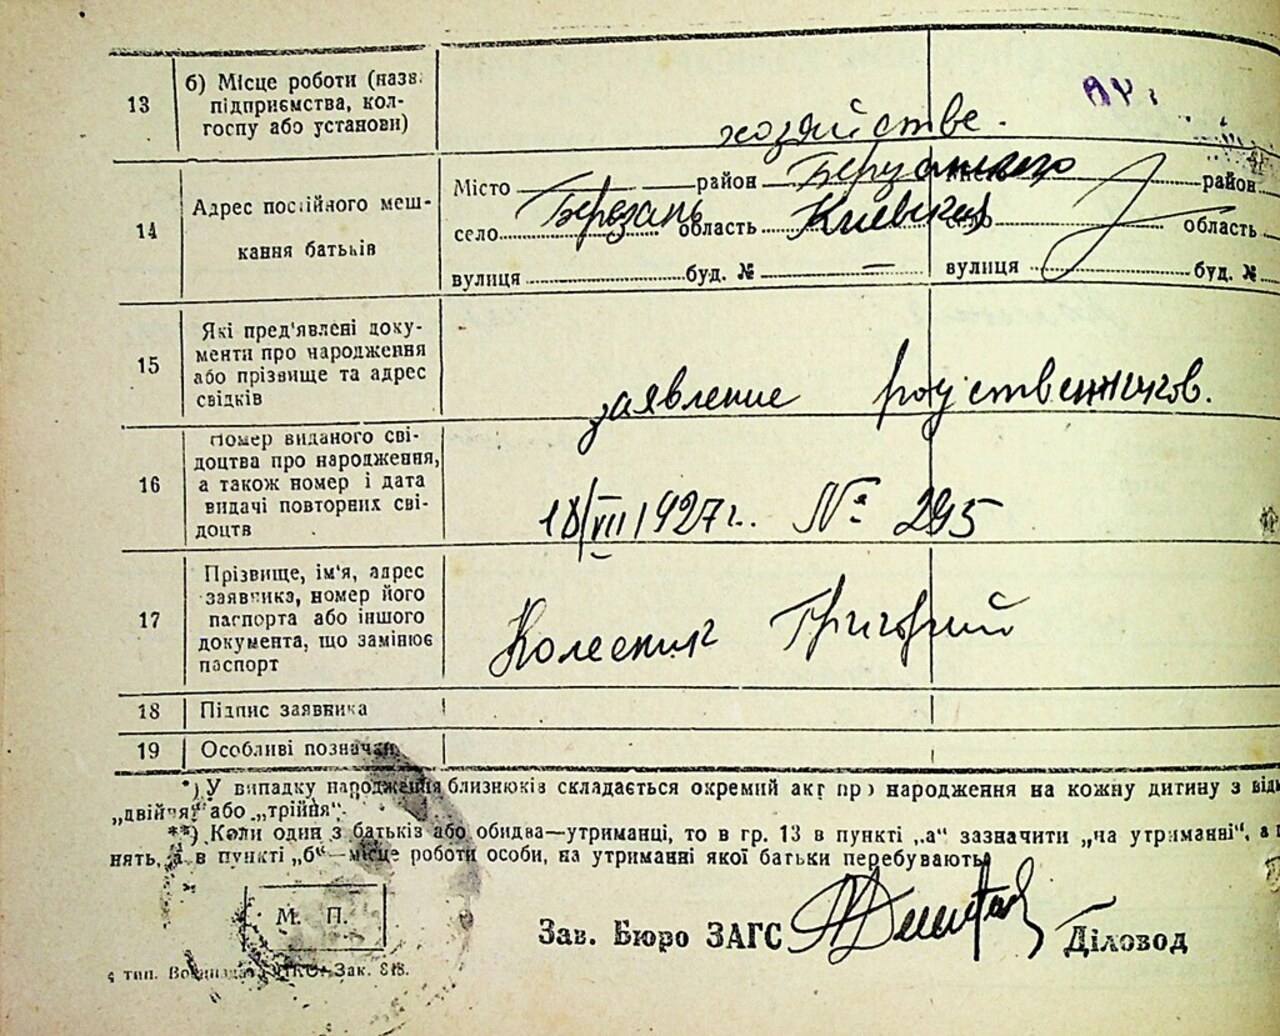 13 б) Місце роботи (назв.
підприємства, кол-
госпу або установи)
хозяйстве.
14 Адрес постійного меш-
кання батьків
Місто район Місто район
село Березань область Киевская село область
вулиця буд. № — вулиця буд. №
15 Які пред'явлені доку-
менти про народження
або прізвище та адрес
свідків
заявление родственников.
16 Номер виданого сві-
доцтва про народження,
а також номер і дата
видачі повторних сві-
доцтв
18/VII 1927г. № 295
17 Прізвище, ім'я, адрес
заявника, номер його
паспорта або іншого
документа, що замінює
паспорт
Колесник Григорий
18 Підпис заявника
19 Особливі позначки
*) У випадку народження близнюків складається окремий акт про народження на кожну дитину з від
„двійня" або „трійня".
**) Коли один з батьків або обидва—утриманці, то в гр. 13 в пункті „а" зазначити „на утриманні", а
нять, а в пункті „б"—місце роботи особи, на утриманні якої батьки перебувають.
М. П.
Зав. Бюро ЗАГС Діловод
тип. Зак. 818.